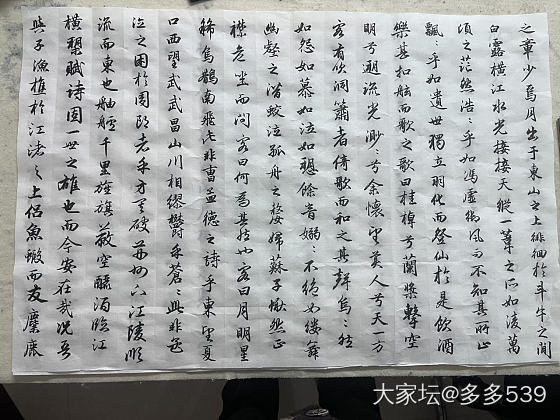 之章少焉月出于東山之上徘徊於斗牛之間
白露橫江水光接接天縱一葦之所如淩萬
頃之茫然浩〻乎如馮虛御風而不知其所止
飄〻乎如遺世獨立羽化而登仙於是飲酒
樂甚扣舷而歌之歌曰桂棹兮蘭槳擊空
明兮溯流光渺〻兮余懷望美人兮天一方
客有吹洞簫者倚歌而和之其聲烏〻然
如怨如慕如泣如愬餘音嫋〻不絕如縷舞
幽壑之潛蛟泣孤舟之嫠婦蘇子愀然正
襟危坐而問客曰何為其然也客曰月明星
稀烏鵲南飛此非曹孟德之詩乎東望夏
口西望武武昌山川相繆鬱乎蒼〻此非孟
德之困於周郎者乎方其破荊州下江陵順
流而東也舳艫千里旌旗蔽空釃酒臨江
橫槊賦詩固一世之雄也而今安在哉況吾
與子漁樵於江渚之上侶魚蝦而友麋鹿
大家坛@多多539